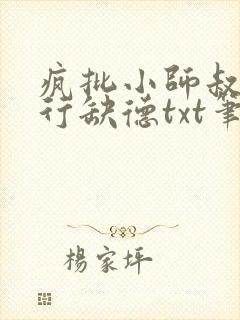 疯批小師叔
行缺德txt筆
楊家坪